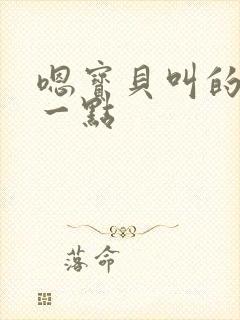 嗯寶貝叫的
一點
落命